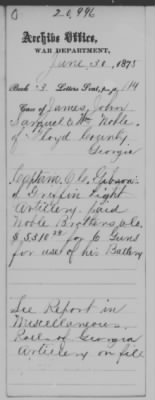 20,996
Archive Office,
WAR DEPARTMENT,
June 30, 1875
Book 3 Letters Sent, p. 114
Case of James, John
Samuel & Wm. Noble
of Floyd County
Georgia
Captain C. Gibson
of Griffin Light
Artillery paid
Noble Brothers & Co.
$5310 for 6 Guns
for use of his Battery
See Report in
Miscellaneous
Rolls of Georgia
Artillery on file